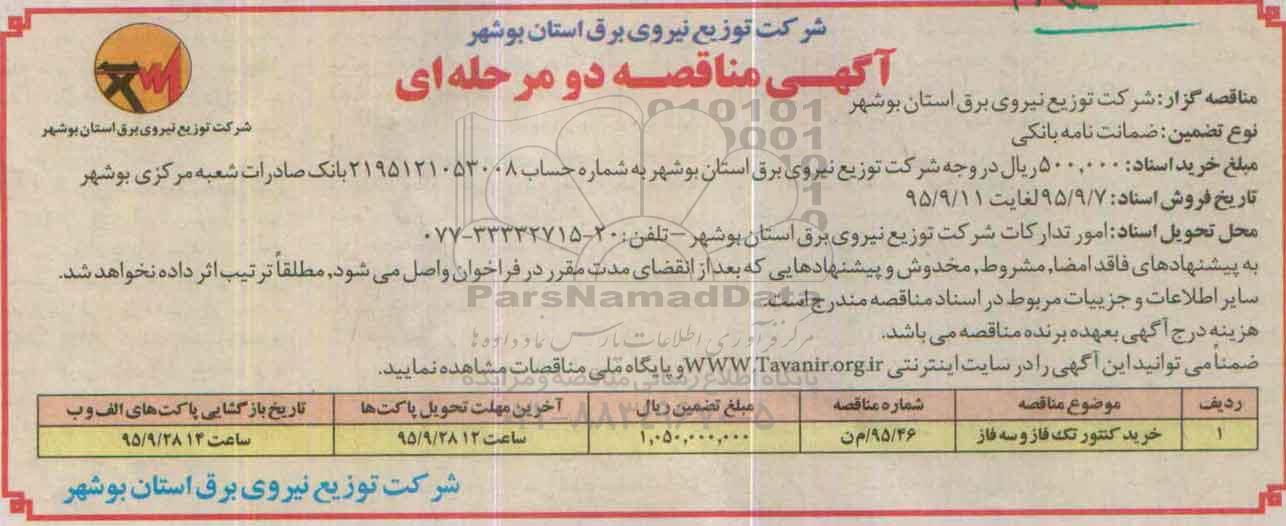 شرکت توزیع نیروی برق استان بوشهر
آگهی مناقصه دو مرحله ای
شرکت توزیع نیروی برق استان بوشهر
مناقصه گزار: شرکت توزیع نیروی برق استان بوشهر
نوع تضمین: ضمانت نامه بانکی
مبلغ خرید اسناد: ۵۰۰,۰۰۰ ریال در وجه شرکت توزیع نیروی برق استان بوشهر به شماره حساب ۲۱۹۵۱۲۱۰۵۳۰۰۸ بانک صادرات شعبه مرکزی بوشهر
تاریخ فروش اسناد: ۹۵/۹/۷ لغایت ۹۵/۹/۱۱
محل تحویل اسناد: امور تدارکات شرکت توزیع نیروی برق استان بوشهر – تلفن: ۲۰-۳۳۳۳۲۷۱۵-۰۷۷
به پیشنهادهای فاقد امضا, مشروط, مخدوش و پیشنهادهایی که بعد از انقضای مدت مقرر در فراخوان واصل می شود, مطلقاً ترتیب اثر داده نخواهد شد.
ParsNamadData
سایر اطلاعات و جزییات مربوط در اسناد مناقصه مندرج است.
هزینه درج آگهی بعهده برنده مناقصه می باشد.
مرکز فرآوری اطلاعات پارس نماد داده ها
ضمناً می توانید این آگهی را در سایت اینترنتی WWW.Tavanir.org.ir و پایگاه ملی مناقصات مشاهده نمایید.
پایگاه اطلاع رسانی مناقصه و مزایده
ردیف موضوع مناقصه شماره مناقصه مبلغ تضمین ریال آخرین مهلت تحویل پاکت ها تاریخ بازگشایی پاکت های الف و ب
۱ خرید کنتور تک فاز و سه فاز ۹۵/۴۶/م ن ۱,۰۵۰,۰۰۰,۰۰۰ ساعت ۱۲ ۹۵/۹/۲۸ ساعت ۱۴ ۹۵/۹/۲۸
شرکت توزیع نیروی برق استان بوشهر